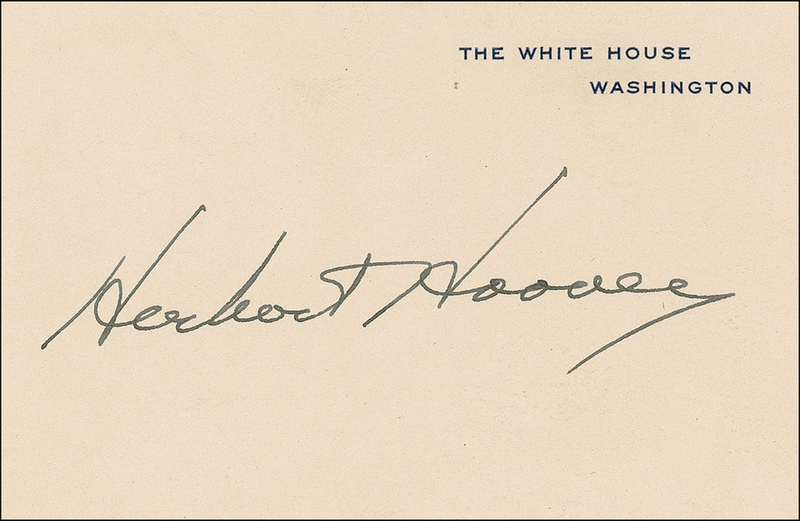 THE WHITE HOUSE
WASHINGTON
Herbert Hoover